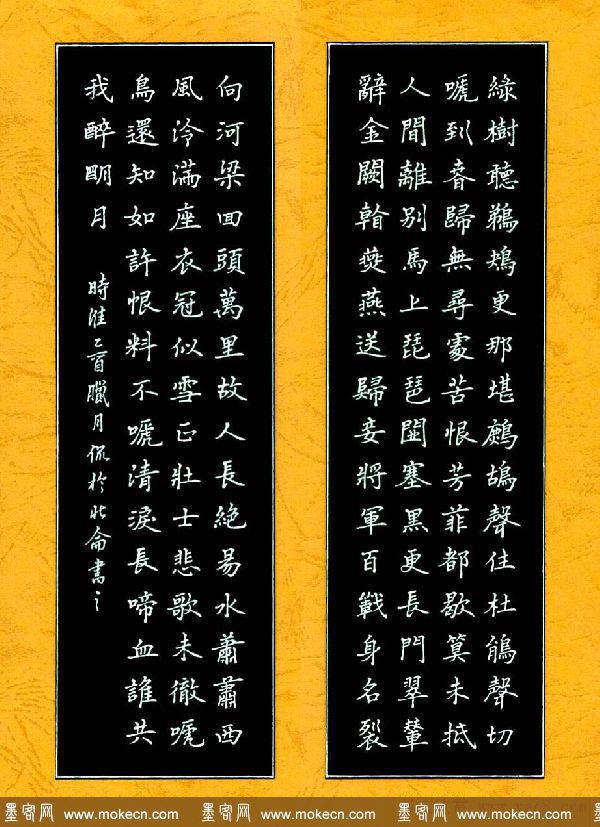 綠樹聽鵜鴂更那堪鷓鴣聲住杜鵑聲切
嗁到春歸無尋處苦恨芳菲都歇算未抵
人間離別馬上琵琶關塞黑更長門翠輦
辭金闕看燕燕送歸妾將軍百戰身名裂
向河梁回頭萬里故人長絕易水蕭蕭西
風冷滿座衣冠似雪正壯士悲歌未徹嗁
鳥還知如許恨料不嗁清淚長啼血誰共
我醉明月 時乙酉臘月侃於北侖書之
墨客网 www.mokecn.com 墨客网 www.mokecn.com 墨客网 www.mokecn.com